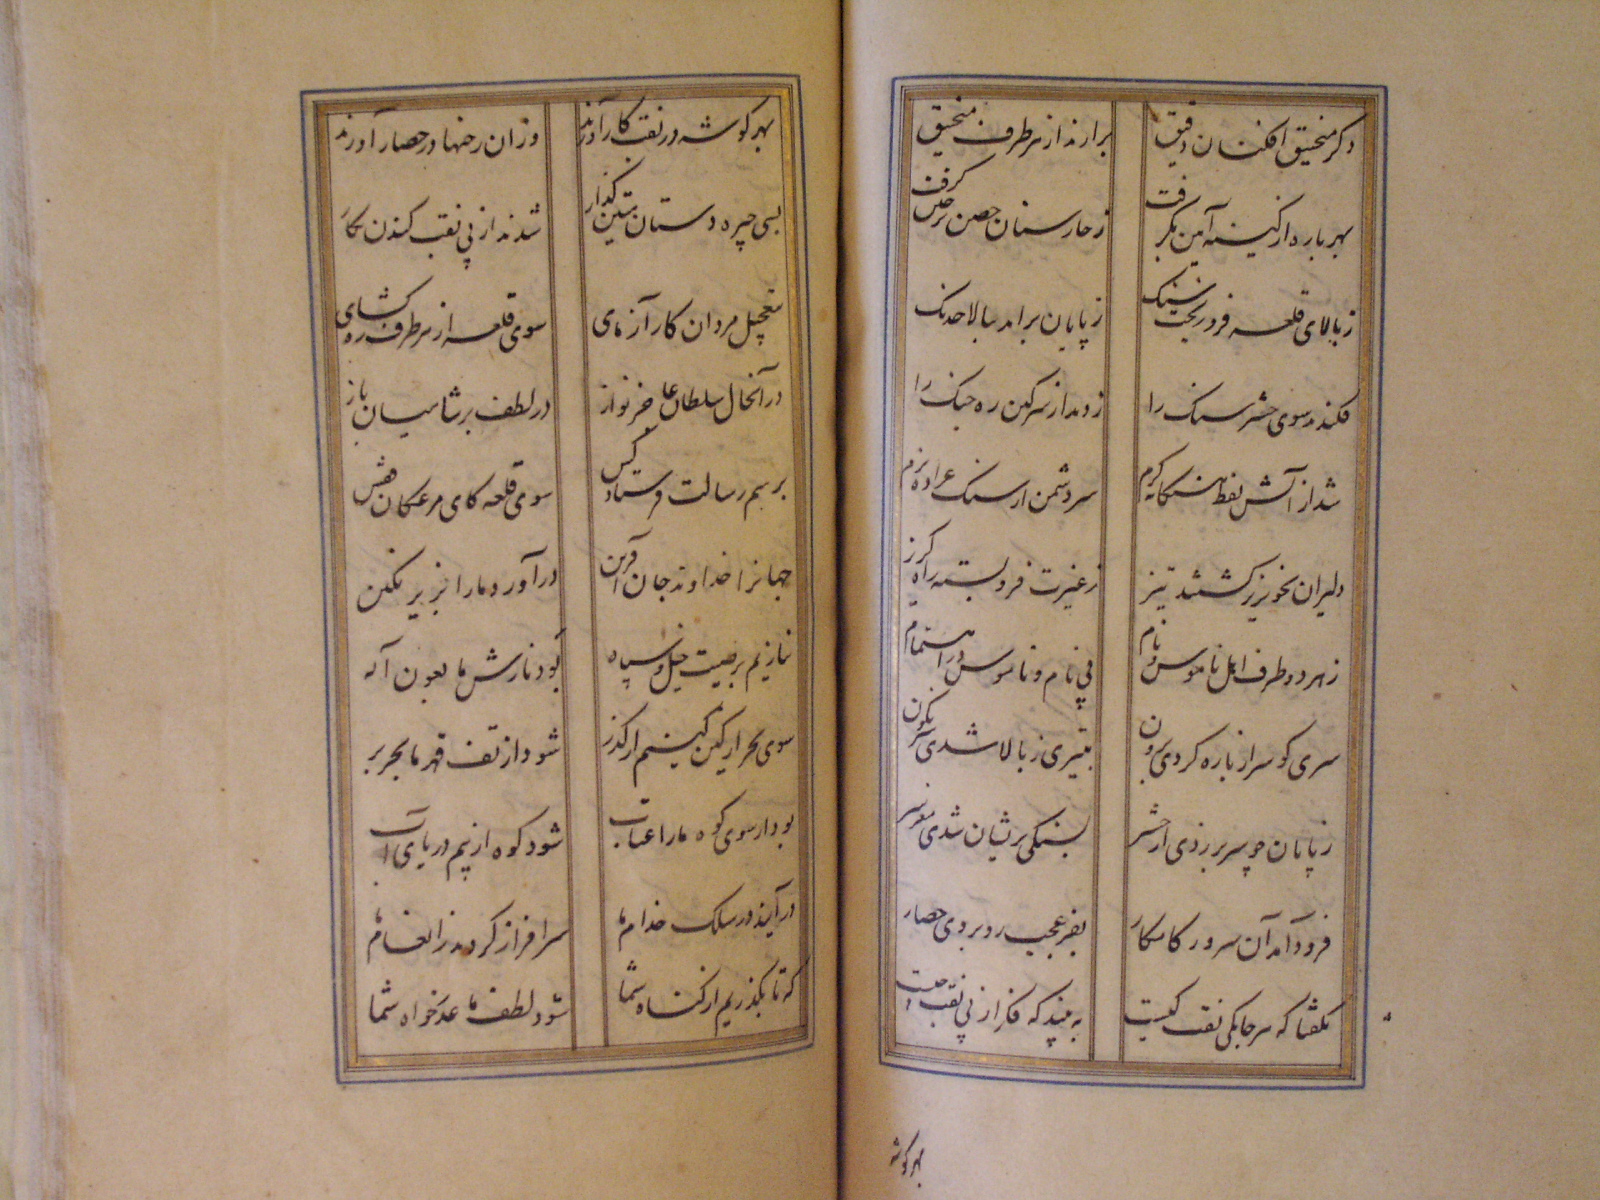 دکر منجنیق افکنان دقیق برارند از هر طرف منجنیق
بهر باره از کینه آیین گرفت ز حارسنان حصن گرفت
ز بالای قلعه فرو ریخت سنک ز پایان برامد ببالا خدنک
فکندند سوی حشر سنک را زدند از سر کین ره جنک را
شد از آتش نفط هنکامه کرم سر دشمن از سنک عراده نرم
دلیران بخونریز کشتند تیز ز غیرت فرو بسته راه کریز
ز هر دو طرف اهل ناموس و نام پی نام و ناموس در اهتمام
سری کو سر از باره کردی برون بتیری ز بالا شدی سرنکون
ز پایان چو سر بر زدی از حشر بسنکی پریشان شدی مغز سر
فرود آمد آن سرور کامکار بفر عجیب رو بروی حصار
بکفتا که هر جا یکی نقب کیست به بینید که فکر از پی نقب چیست
بهر کوشه
بهر کوشه در نقب کار آورند وزان رخنها در حصار آورند
بسی چیره دستان سنکین کذار شدند از پی نقب کندن بکار
بتعجیل مردان کار آزمای سوی قلعه از هر طرف ره کشای
در آنحال سلطان عاجز نواز در لطف بر شامیان باز
برسم رسالت فرستاد کس سوی قلعه کای مرغکان قفس
جهانرا خداوند جان آفرین در آورد ما را بزیر نکین
ننازیم بر صیت خیل و سپاه بود نازش ما بعون آله
سوی بحر از کین کنیم ار کذر شود از تف قهر ما بحر بر
بود ار سوی کوه ما را عتاب شود کوه از بیم دریای آب
در آیید در سلک خدام ما سرافراز کردید ز انعام ما
که تا بکذریم از کناه شما شود لطف ما عذرخواه شما